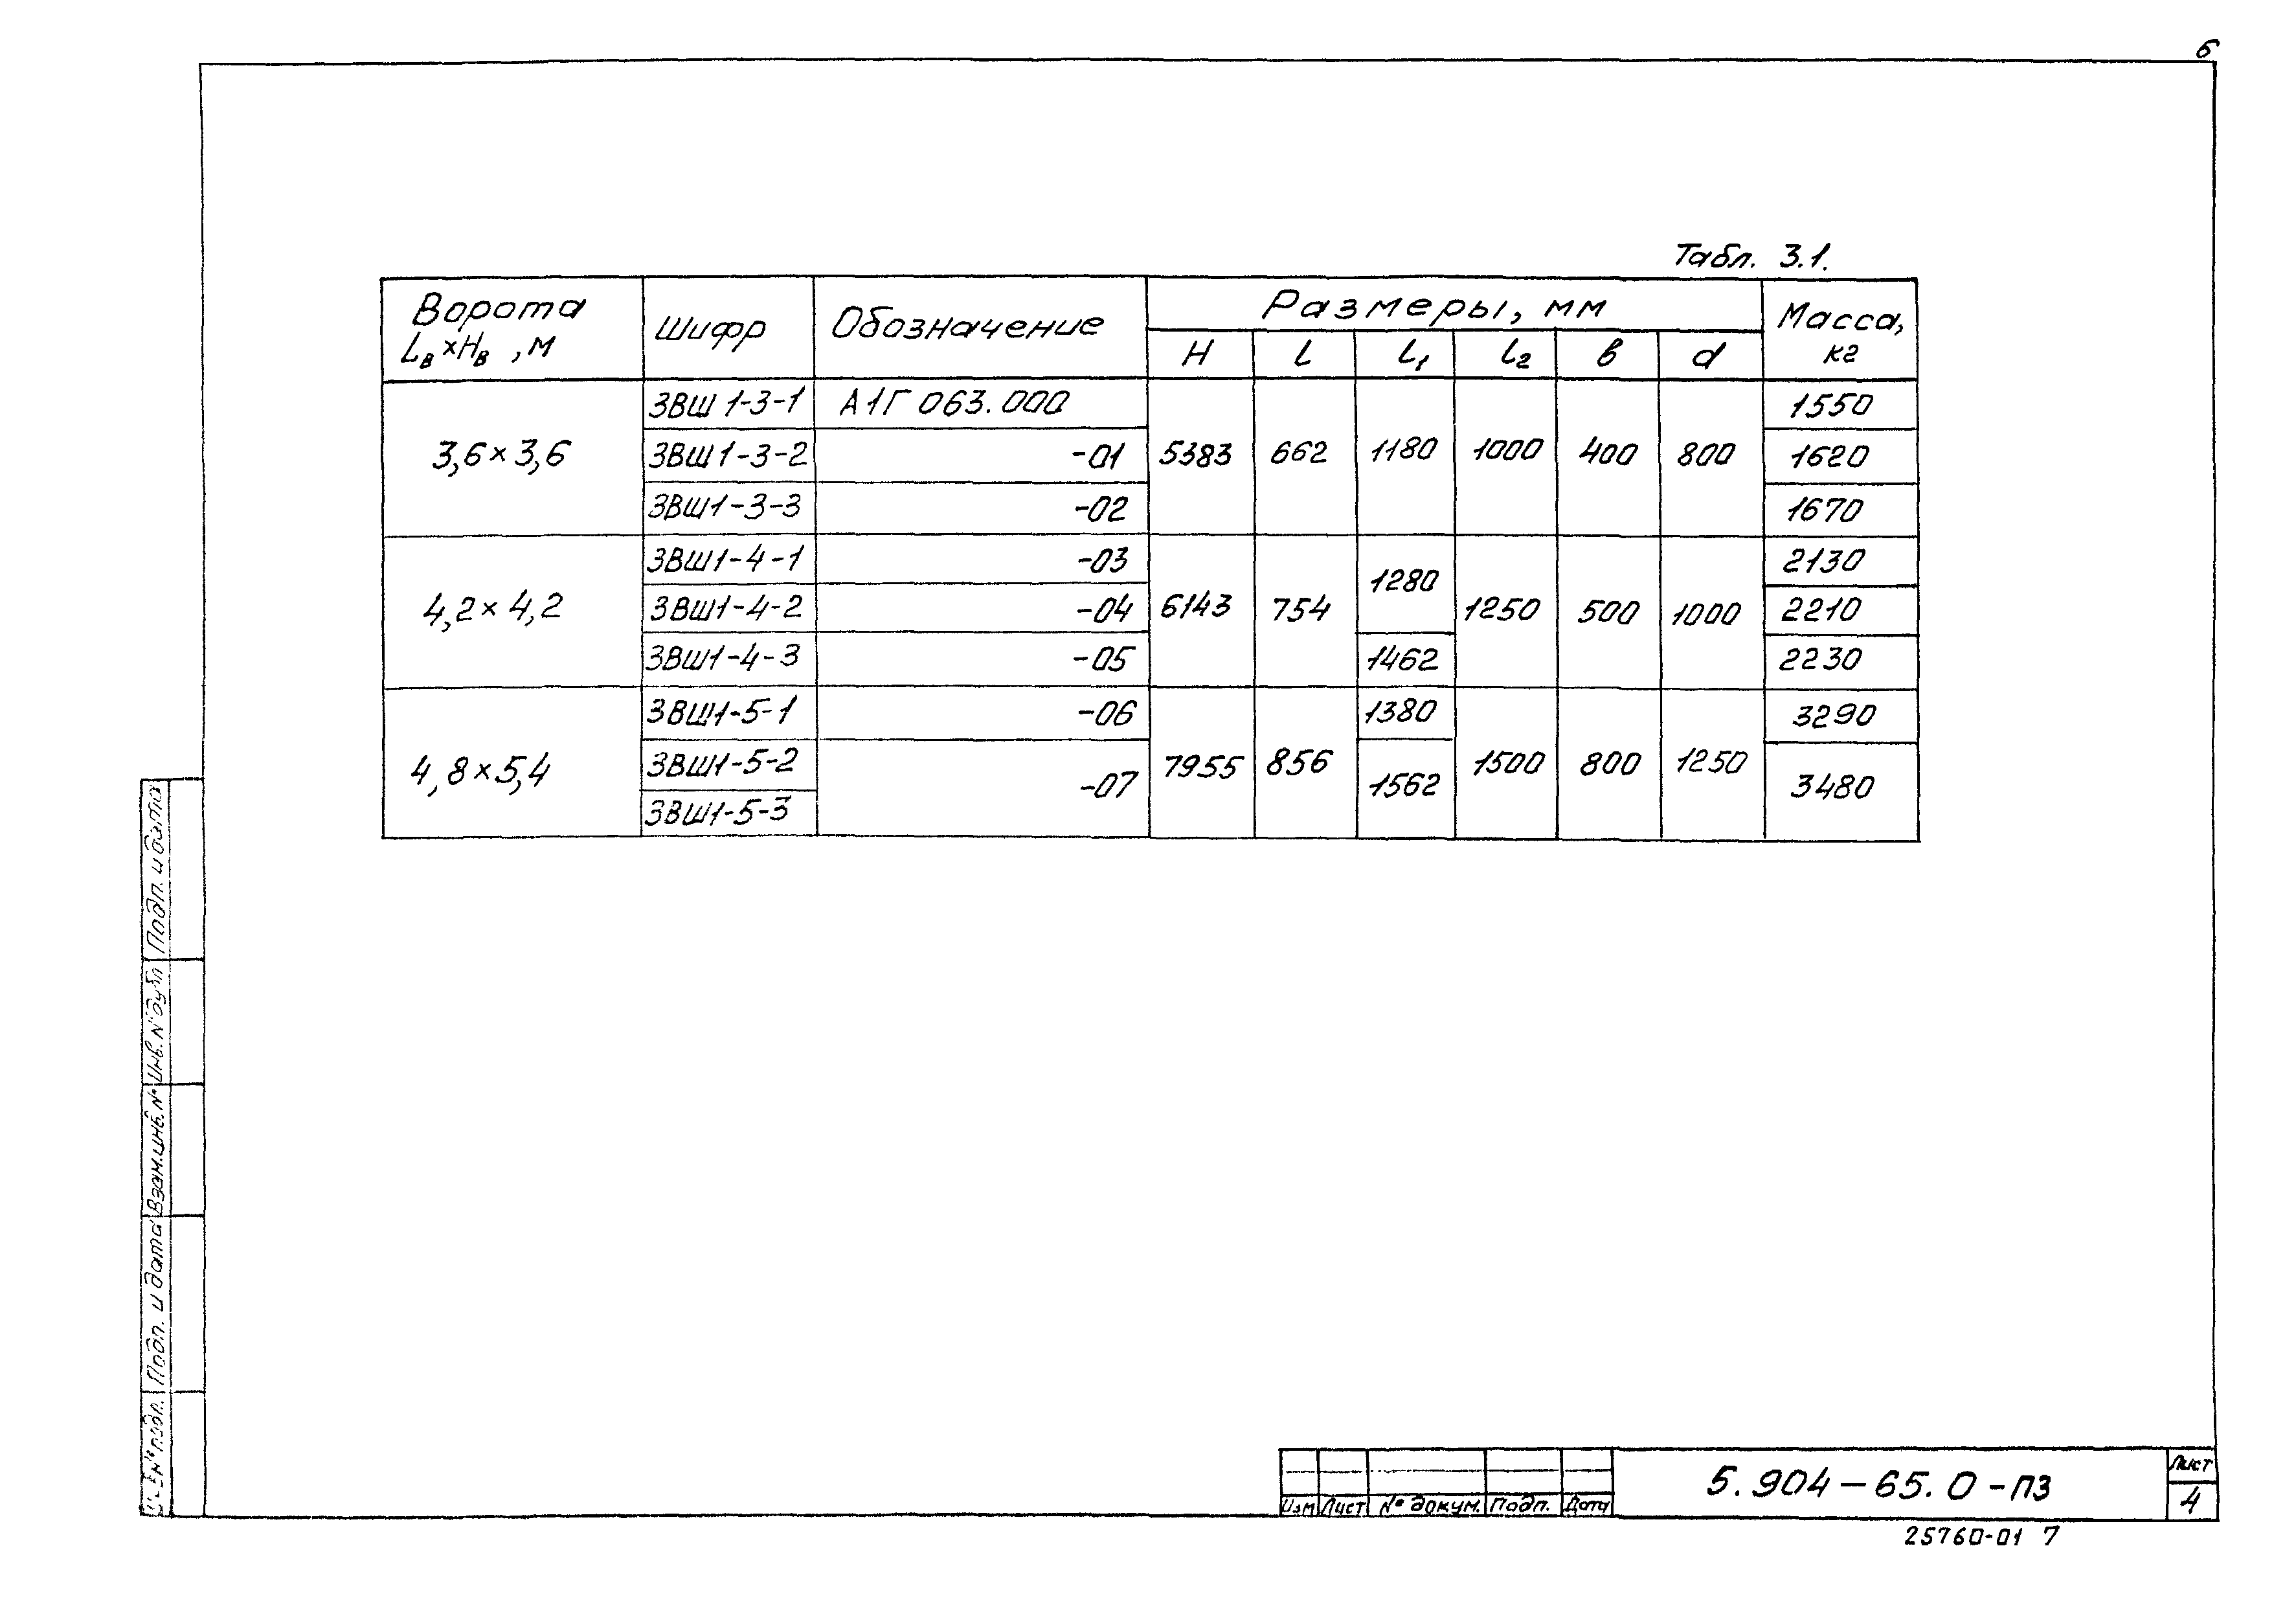 6
Табл. 3.1.
Ворота Lв×Hв, м Шифр Обозначение Размеры, мм Масса, кг
H l l1 l2 в d
3,6×3,6 5383 662 1180 1000 400 800
ЗВШ 1-3-1 А1Г 063.000 1550
ЗВШ1-3-2 -01 1620
ЗВШ1-3-3 -02 1670
4,2×4,2 6143 754 1250 500 1000
ЗВШ1-4-1 -03 1280 2130
ЗВШ1-4-2 -04 2210
ЗВШ1-4-3 -05 1462 2230
4,8×5,4 7955 856 1500 800 1250
ЗВШ1-5-1 -06 1380 3290
ЗВШ1-5-2 -07 1562 3480
ЗВШ1-5-3
Подп. и дата
Инв. № дубл
Взам.инв.№
Подп. и дата
№ подл.
Изм Лист № докум. Подп. Дата
5.904-65.0-ПЗ
Лист
4
25760-01 7